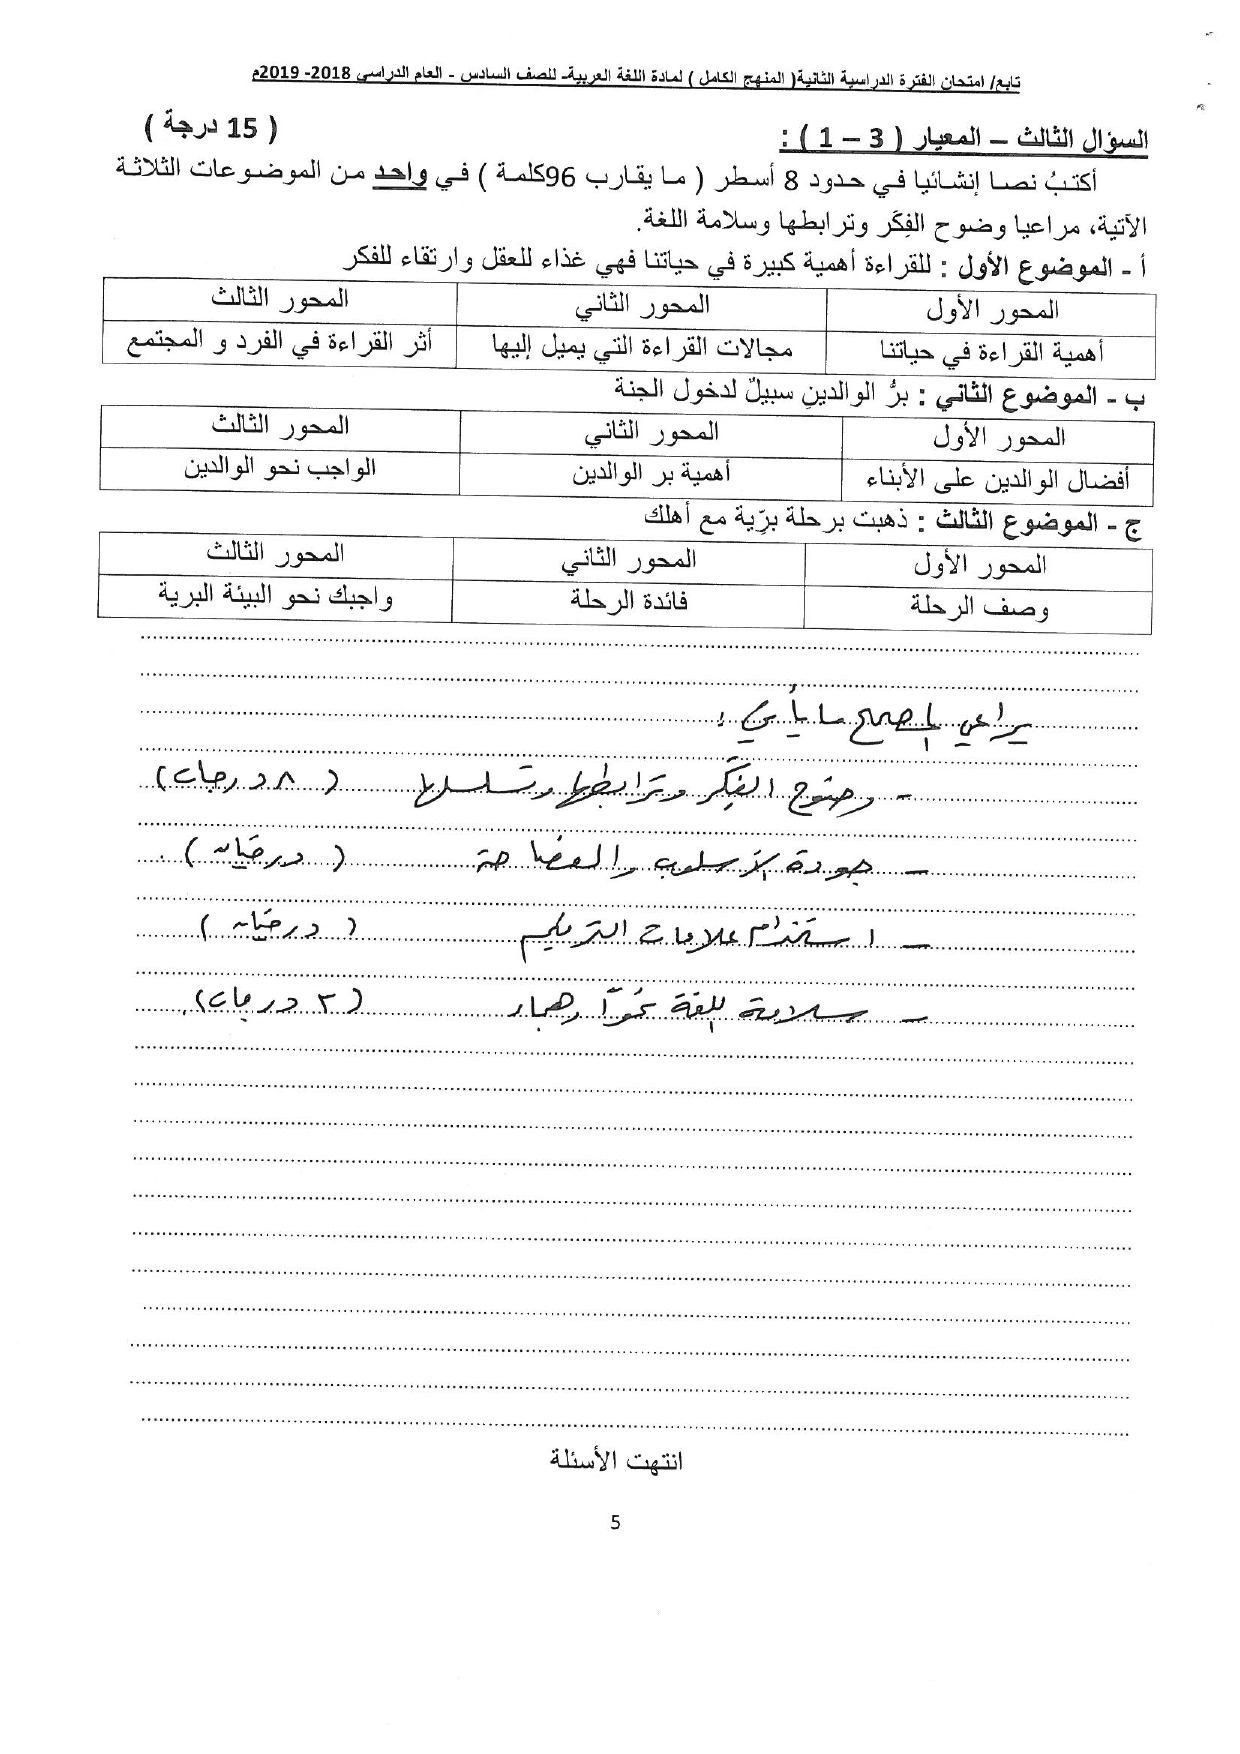 تابع/ امتحان الفترة الدراسية الثانية( المنهج الكامل ) لمادة اللغة العربية- للصف السادس - العام الدراسي 2018- 2019م
السؤال الثالث – المعيار ( 3 – 1 ) : ( 15 درجة )
أكتبُ نصا إنشائيا في حدود 8 أسطر ( ما يقارب 96كلمة ) في واحد من الموضوعات الثلاثة
الآتية، مراعيا وضوح الفِكَر وترابطها وسلامة اللغة.
أ - الموضوع الأول : للقراءة أهمية كبيرة في حياتنا فهي غذاء للعقل وارتقاء للفكر
المحور الأول المحور الثاني المحور الثالث
أهمية القراءة في حياتنا مجالات القراءة التي يميل إليها أثر القراءة في الفرد و المجتمع
ب - الموضوع الثاني : برُّ الوالدينِ سبيلٌ لدخول الجنة
المحور الأول المحور الثاني المحور الثالث
أفضال الوالدين على الأبناء أهمية بر الوالدين الواجب نحو الوالدين
ج - الموضوع الثالث : ذهبت برحلة برّية مع أهلك
المحور الأول المحور الثاني المحور الثالث
وصف الرحلة فائدة الرحلة واجبك نحو البيئة البرية
يراعي المصحح ما يأتي :
- وضوح الفِكَر وترابطها وتسلسلها ( ٨ درجات )
- جودة الأسلوب والفصاحة ( درجتان ) .
- استخدام علامات الترقيم ( درجتان )
- سلامة اللغة نحوًا وهجاء ( ٣ درجات ) .
انتهت الأسئلة
5